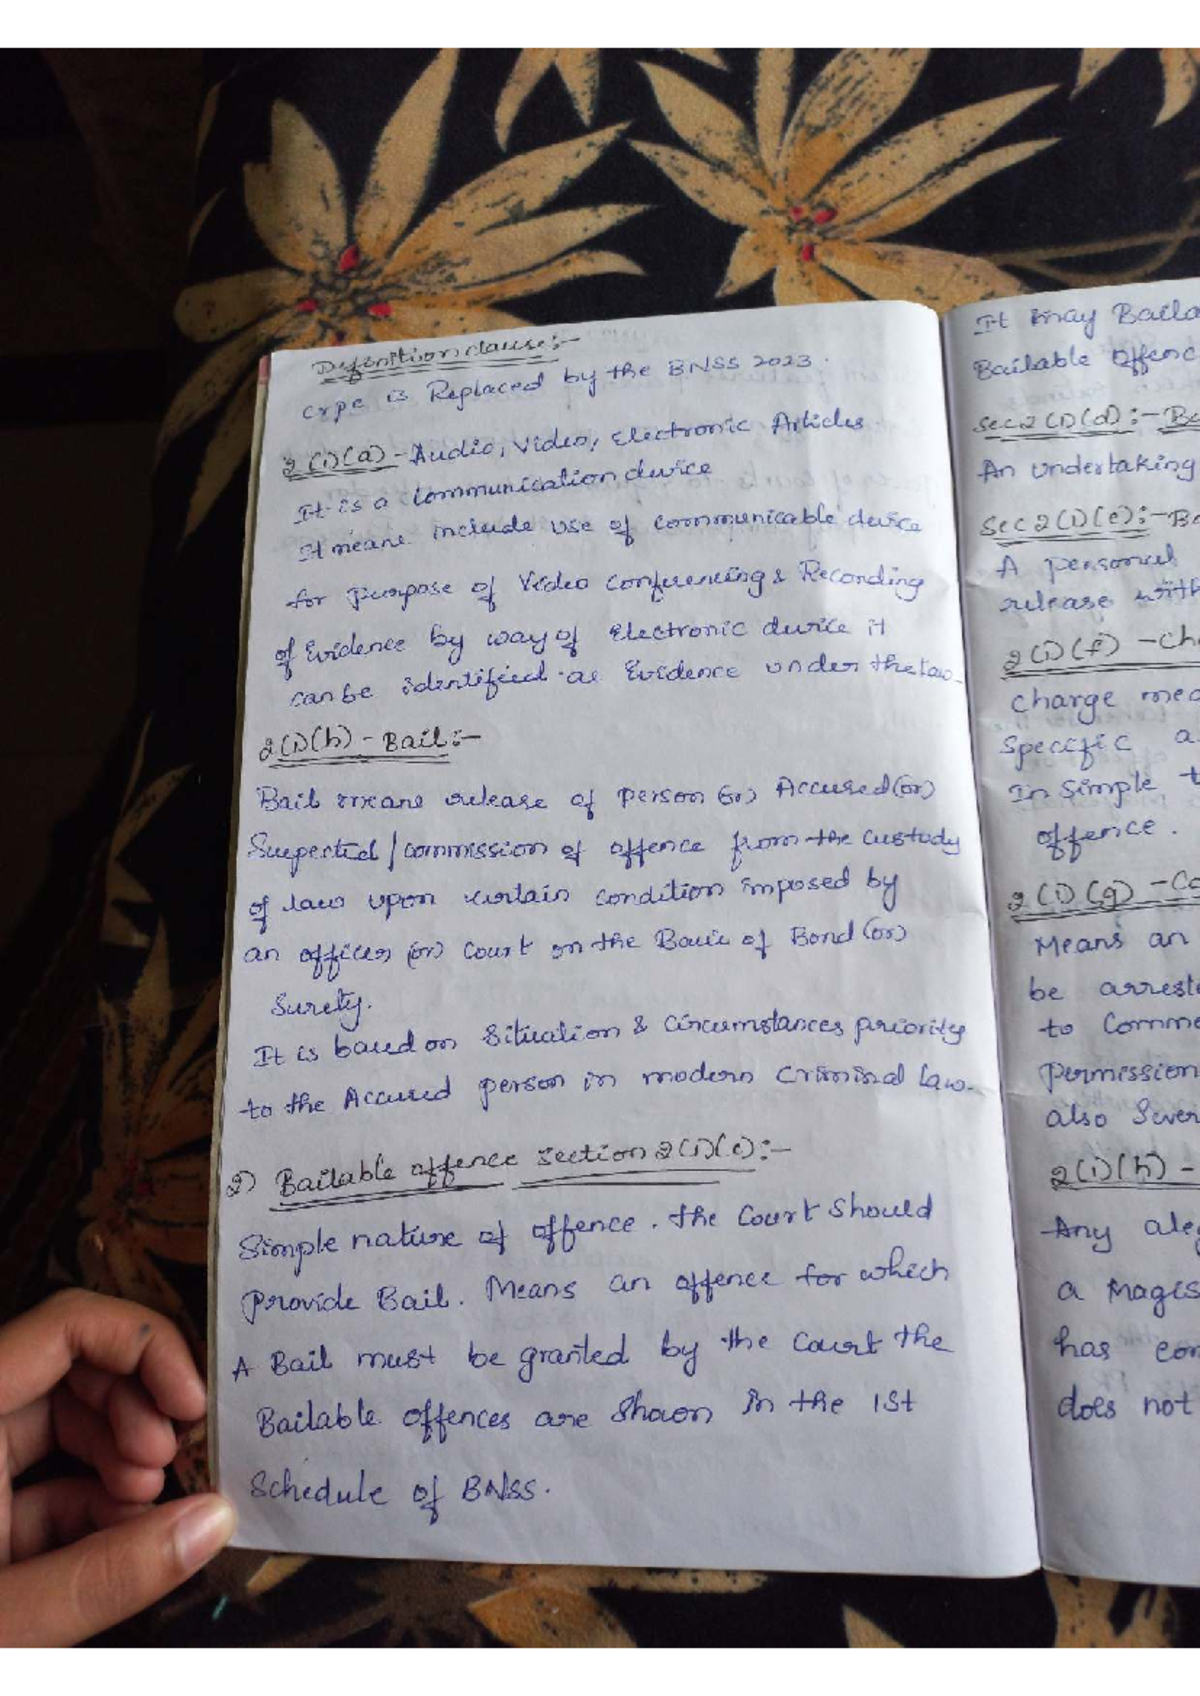 Definition clause:-
crpc is Replaced by the BNSS 2023.
2(1)(a) - Audio, Video, Electronic Articles
It is a Communication device
It means include use of communicable device
for purpose of Video conferencing & Recording
of Evidence by way of Electronic device it
can be identified as Evidence under the law.
2(1)(b) - Bail:-
Bail means release of person (or) Accused (or)
Suspected / commission of offence from the custody
of law upon certain condition imposed by
an officer (or) Court on the Basis of Bond (or)
Surety.
It is based on Situation & Circumstances priority
to the Accused person in modern Criminal Law.
2) Bailable offence Section 2(1)(c):-
Simple nature of offence. The Court Should
Provide Bail. Means an offence for which
A Bail must be granted by the Court the
Bailable offences are Shown in the 1st
Schedule of BNSS.
It may Baila
Bailable offenc
Sec 2(1)(d):- Ba
An undertaking
Sec 2(1)(e):- Bo
A personal
release with
2(1)(f) - Cha
charge mea
Specific a
In Simple t
offence.
2(1)(g) - Co
Means an
be arreste
to Comme
Permission
also Sever
2(1)(h) -
Any aleg
a Magis
has com
does not